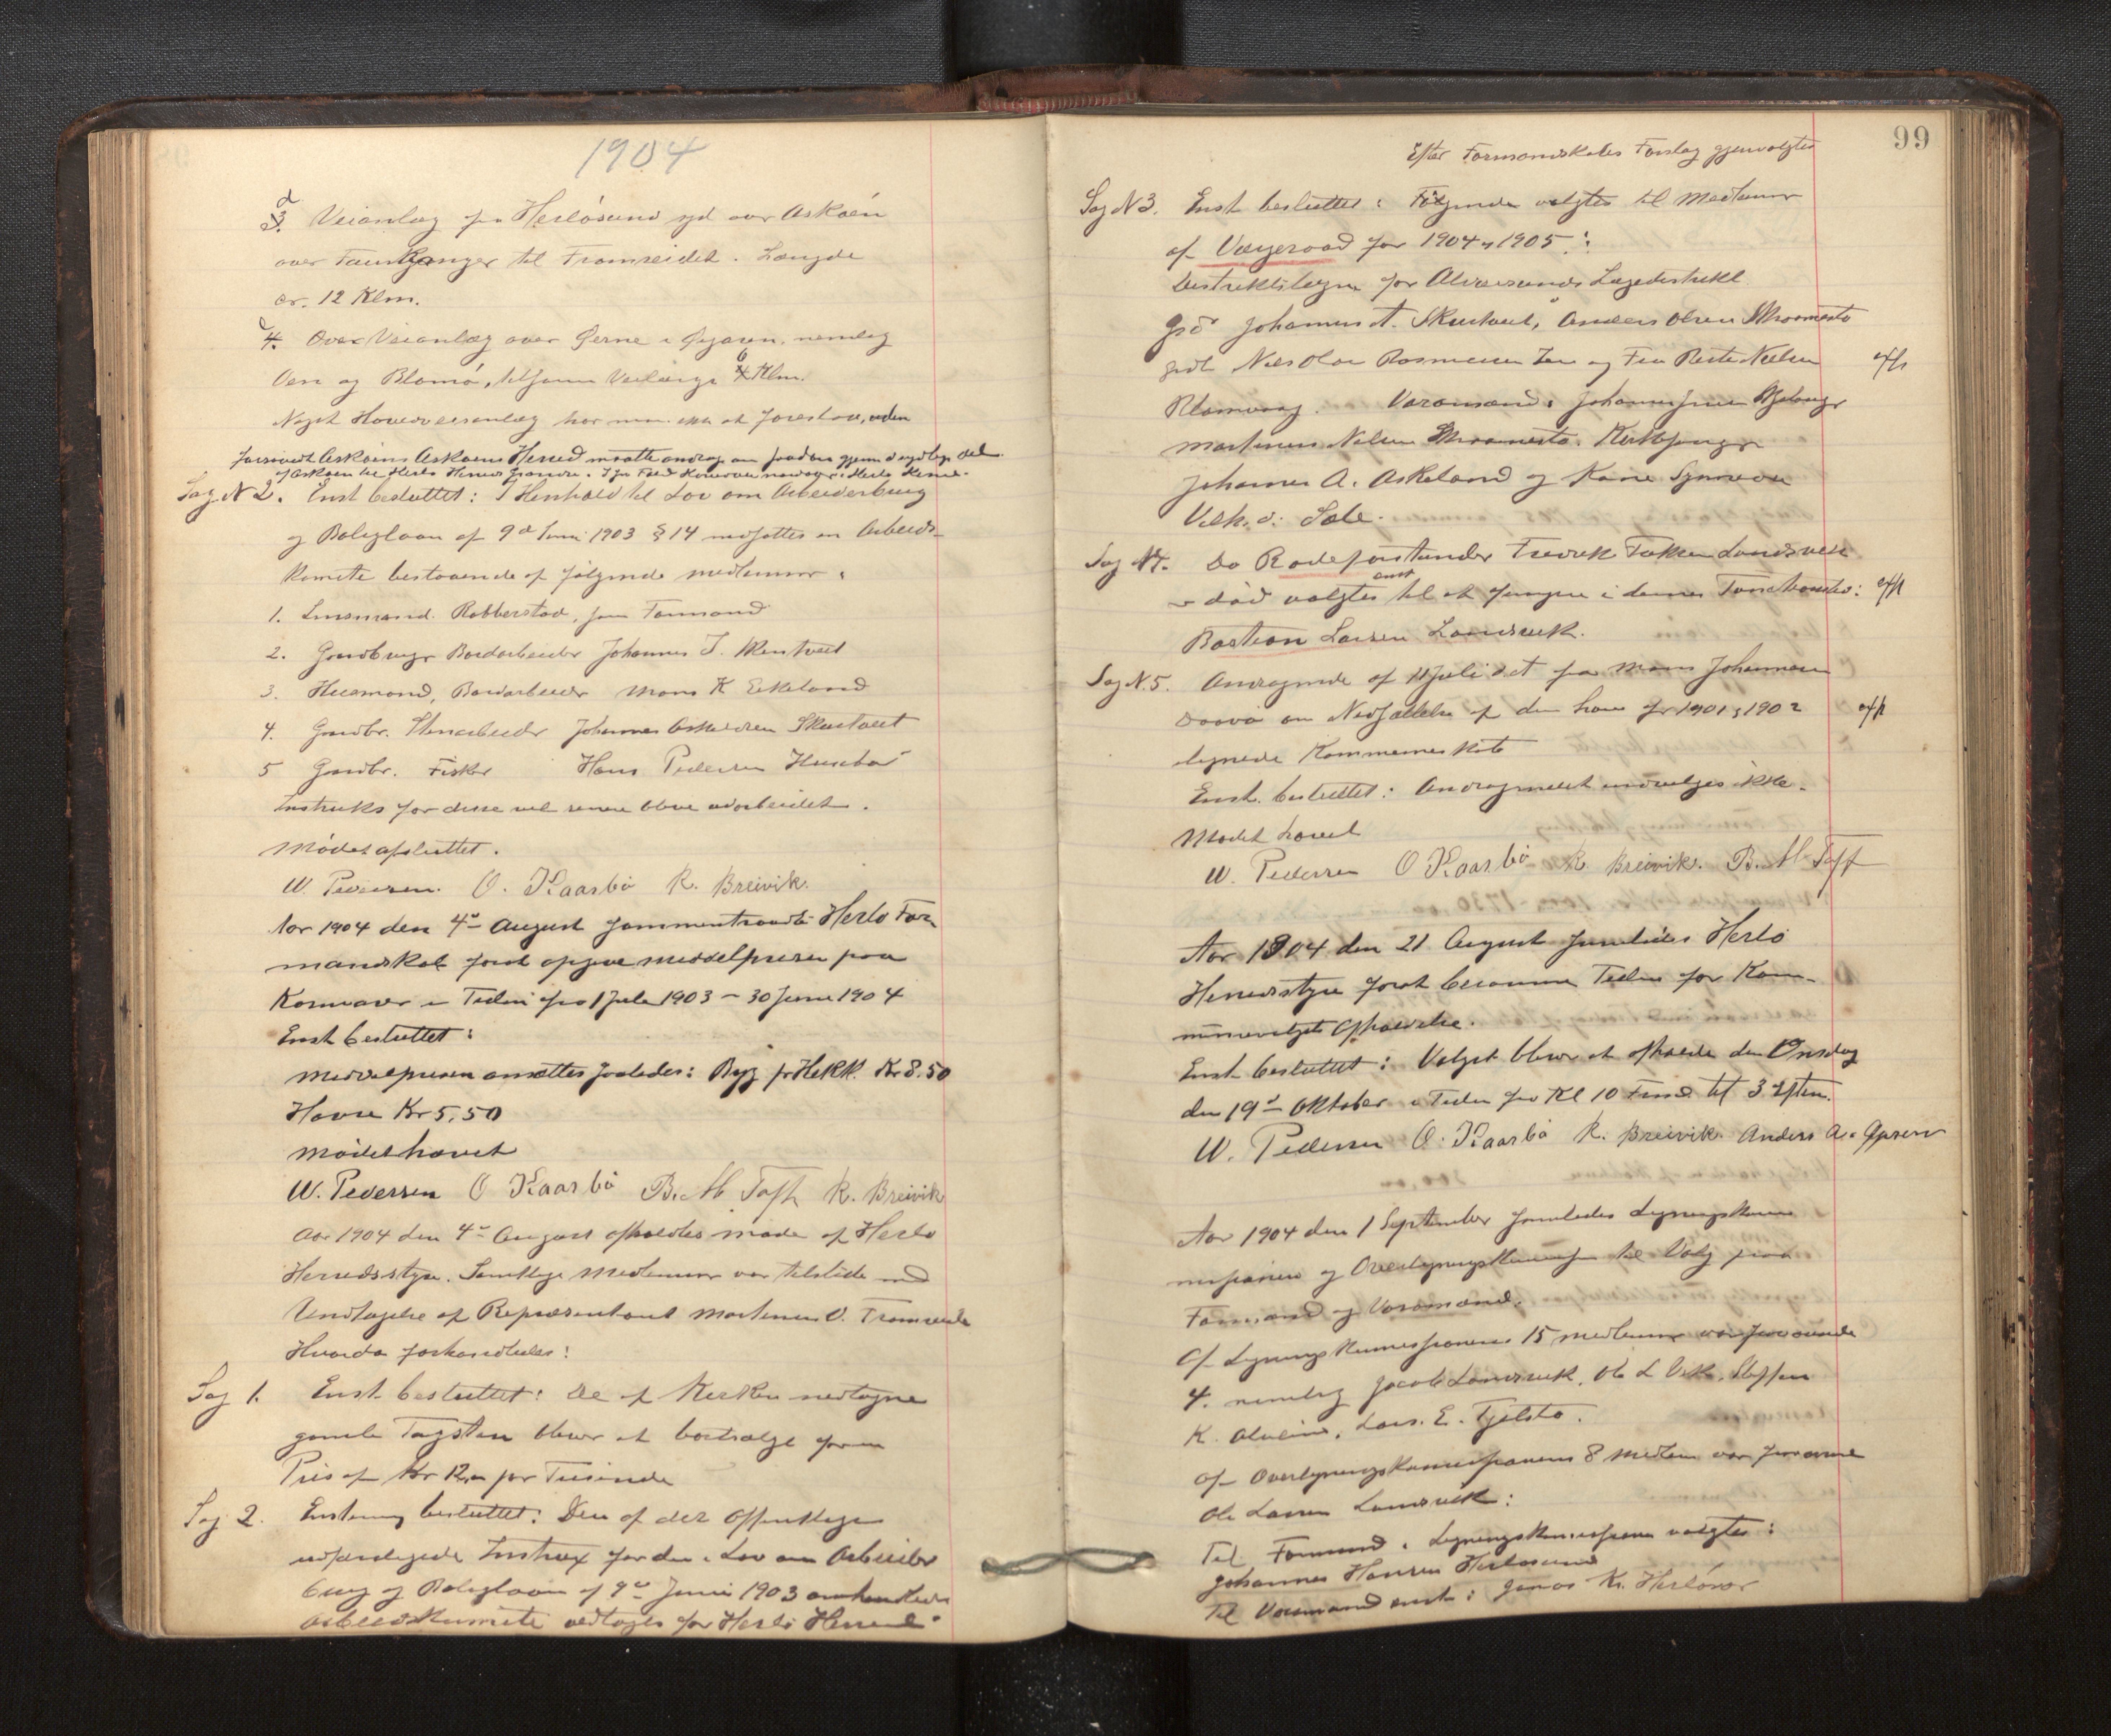 1904
d
3. Veianlæg fra Herløsund syd over Askøen
over Fauskanger til Tromreidet. Længde
ca. 12 Klm.
4. Veianlæg over Øerne i Øygaren, nemlig
Oen og Blomø, tilsammen Veilængde 6 Klm.
Noget Hovedveianlæg har man ikke at foreslaa, uden
forsaavidt Askøens Herred maatte andrage om saadan gjennem sydlige del
af Askøen til Herlø Herreds Grændse.
Sag N 2. Enst besluttet: I Henhold til Lov om Arbeiderbrug
og Boliglaan af 9de Juni 1903 § 14 nedsattes en Arbeids-
komite bestaaende af følgende medlemmer:
1. Lensmand Rabberstad, som Formand
2. Gaardbruger Bordarbeider Johannes J. Mentveit
3. Huusmand, Bordarbeider Mons K Eikeland
4. Gaardbr. Stenarbeider Johannes Askildsen Skurtveit
5 Gaardbr. Fisker Hans Pedersen Husebø
Instruks for disse vil senere blive udarbeidet.
Mødet afsluttet.
W. Pedersen. O. Kaarbø R. Breivik.
Aar 1904 den 4de August sammentraadte Herlø For-
mandskab forat opgive middelprisen paa
Kornvarer i Tiden fra 1 Juli 1903 – 30 Juni 1904
Enst besluttet:
Middelprisen ansættes saaledes: Byg pr Hekt. Kr 8.50
Havre Kr 5,50
Mødet hævet
W. Pedersen O Kaarbø B. M Toft R. Breivik
Aar 1904 den 4de August afholdtes møde af Herlø
Herredsstyre. Samtlige Medlemmer var tilstede med
Undtagelse af Repræsentant Martinus O. Tromreide
Hvorda forhandledes:
Sag 1. Enst besluttet: De af Kirken nedtagne
gamle Tagsten bliver at bortsælge for en
Pris af Kr 12,00 per Tusinde
Sag 2. Enstemmig besluttet: Den af det Offentlige
udfærdigede Instrux for den i Lov om Arbeider
brug og Boliglaan af 9de Juni 1903 omhandlede
Arbeidskomite vedtages for Herlø Herred.
99
Efter Formandskabets Forslag gjenvalgtes
Sag N 3. Enst besluttet: Følgende valgtes til Medlemmer
af Vægeraad for 1904 og 1905:
Distriktslægen for Alversunds Lægedistrikt
Johannes A. Skurtveit, Anders Olsen
Nils Olai Rasmussen og Fru Nilsen e/p
Blomvaag. Varamænd: Johannes
Martinus Nilsen
Johannes A. Askeland og Kari
Sag N4. Da Rodeforstander Fredrik Landsvik
er død valgtes enst til at fungere i dennes Funktionstid: e/p
Bastian Larsen Landsvik.
Sag N. 5. Andragende af 11 Juli d.A. fra Mons Johannesen
om Nedsættelse af den ham for 1901 og 1902 e/p
lignede Kommuneskat
Enst. besluttet: Andragendet indvilges ikke.
Mødet hævet
W. Pedersen O Kaarbø R. Breivik. B. M Toft
Aar 1904 den 21 August samledes Herlø
Herredsstyre forat beramme Tiden for Kom-
munevalgets Afholdelse.
Enst besluttet: Valget bliver at afholde den Onsdag
den 19de Oktober i Tiden fra Kl 10 Form til 3 Efterm.
W. Pedersen O. Kaarbø R. Breivik Anders A.
Aar 1904 den 1 September samledes Ligningskom-
missionen og Overligningskommissionen til Valg paa
Formand og Varamand.
Af Ligningskommissionens 15 medlemmer var fraværende
4. nemlig Jacob Landsvik, Ole L Vik, Steffen
K. Alveim, Lars. E. Tjelstø.
Af Overligningskommissionens 8 Medlem var fraværende
Ole Larsen Landsvik:
Til Formand i Ligningskommissionen valgtes:
Johannes Hansen Herløsund
Til Varamand enst: Jonas K.